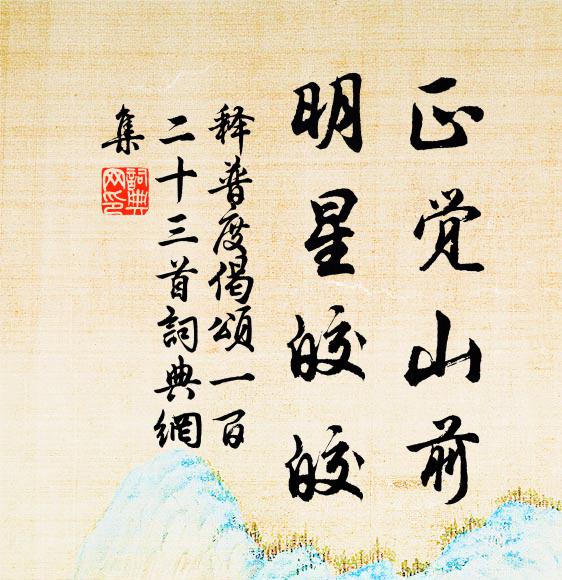 正觉山前
明星皎皎
释普度偈颂一百
二十三首詞典網
集
詞典網印